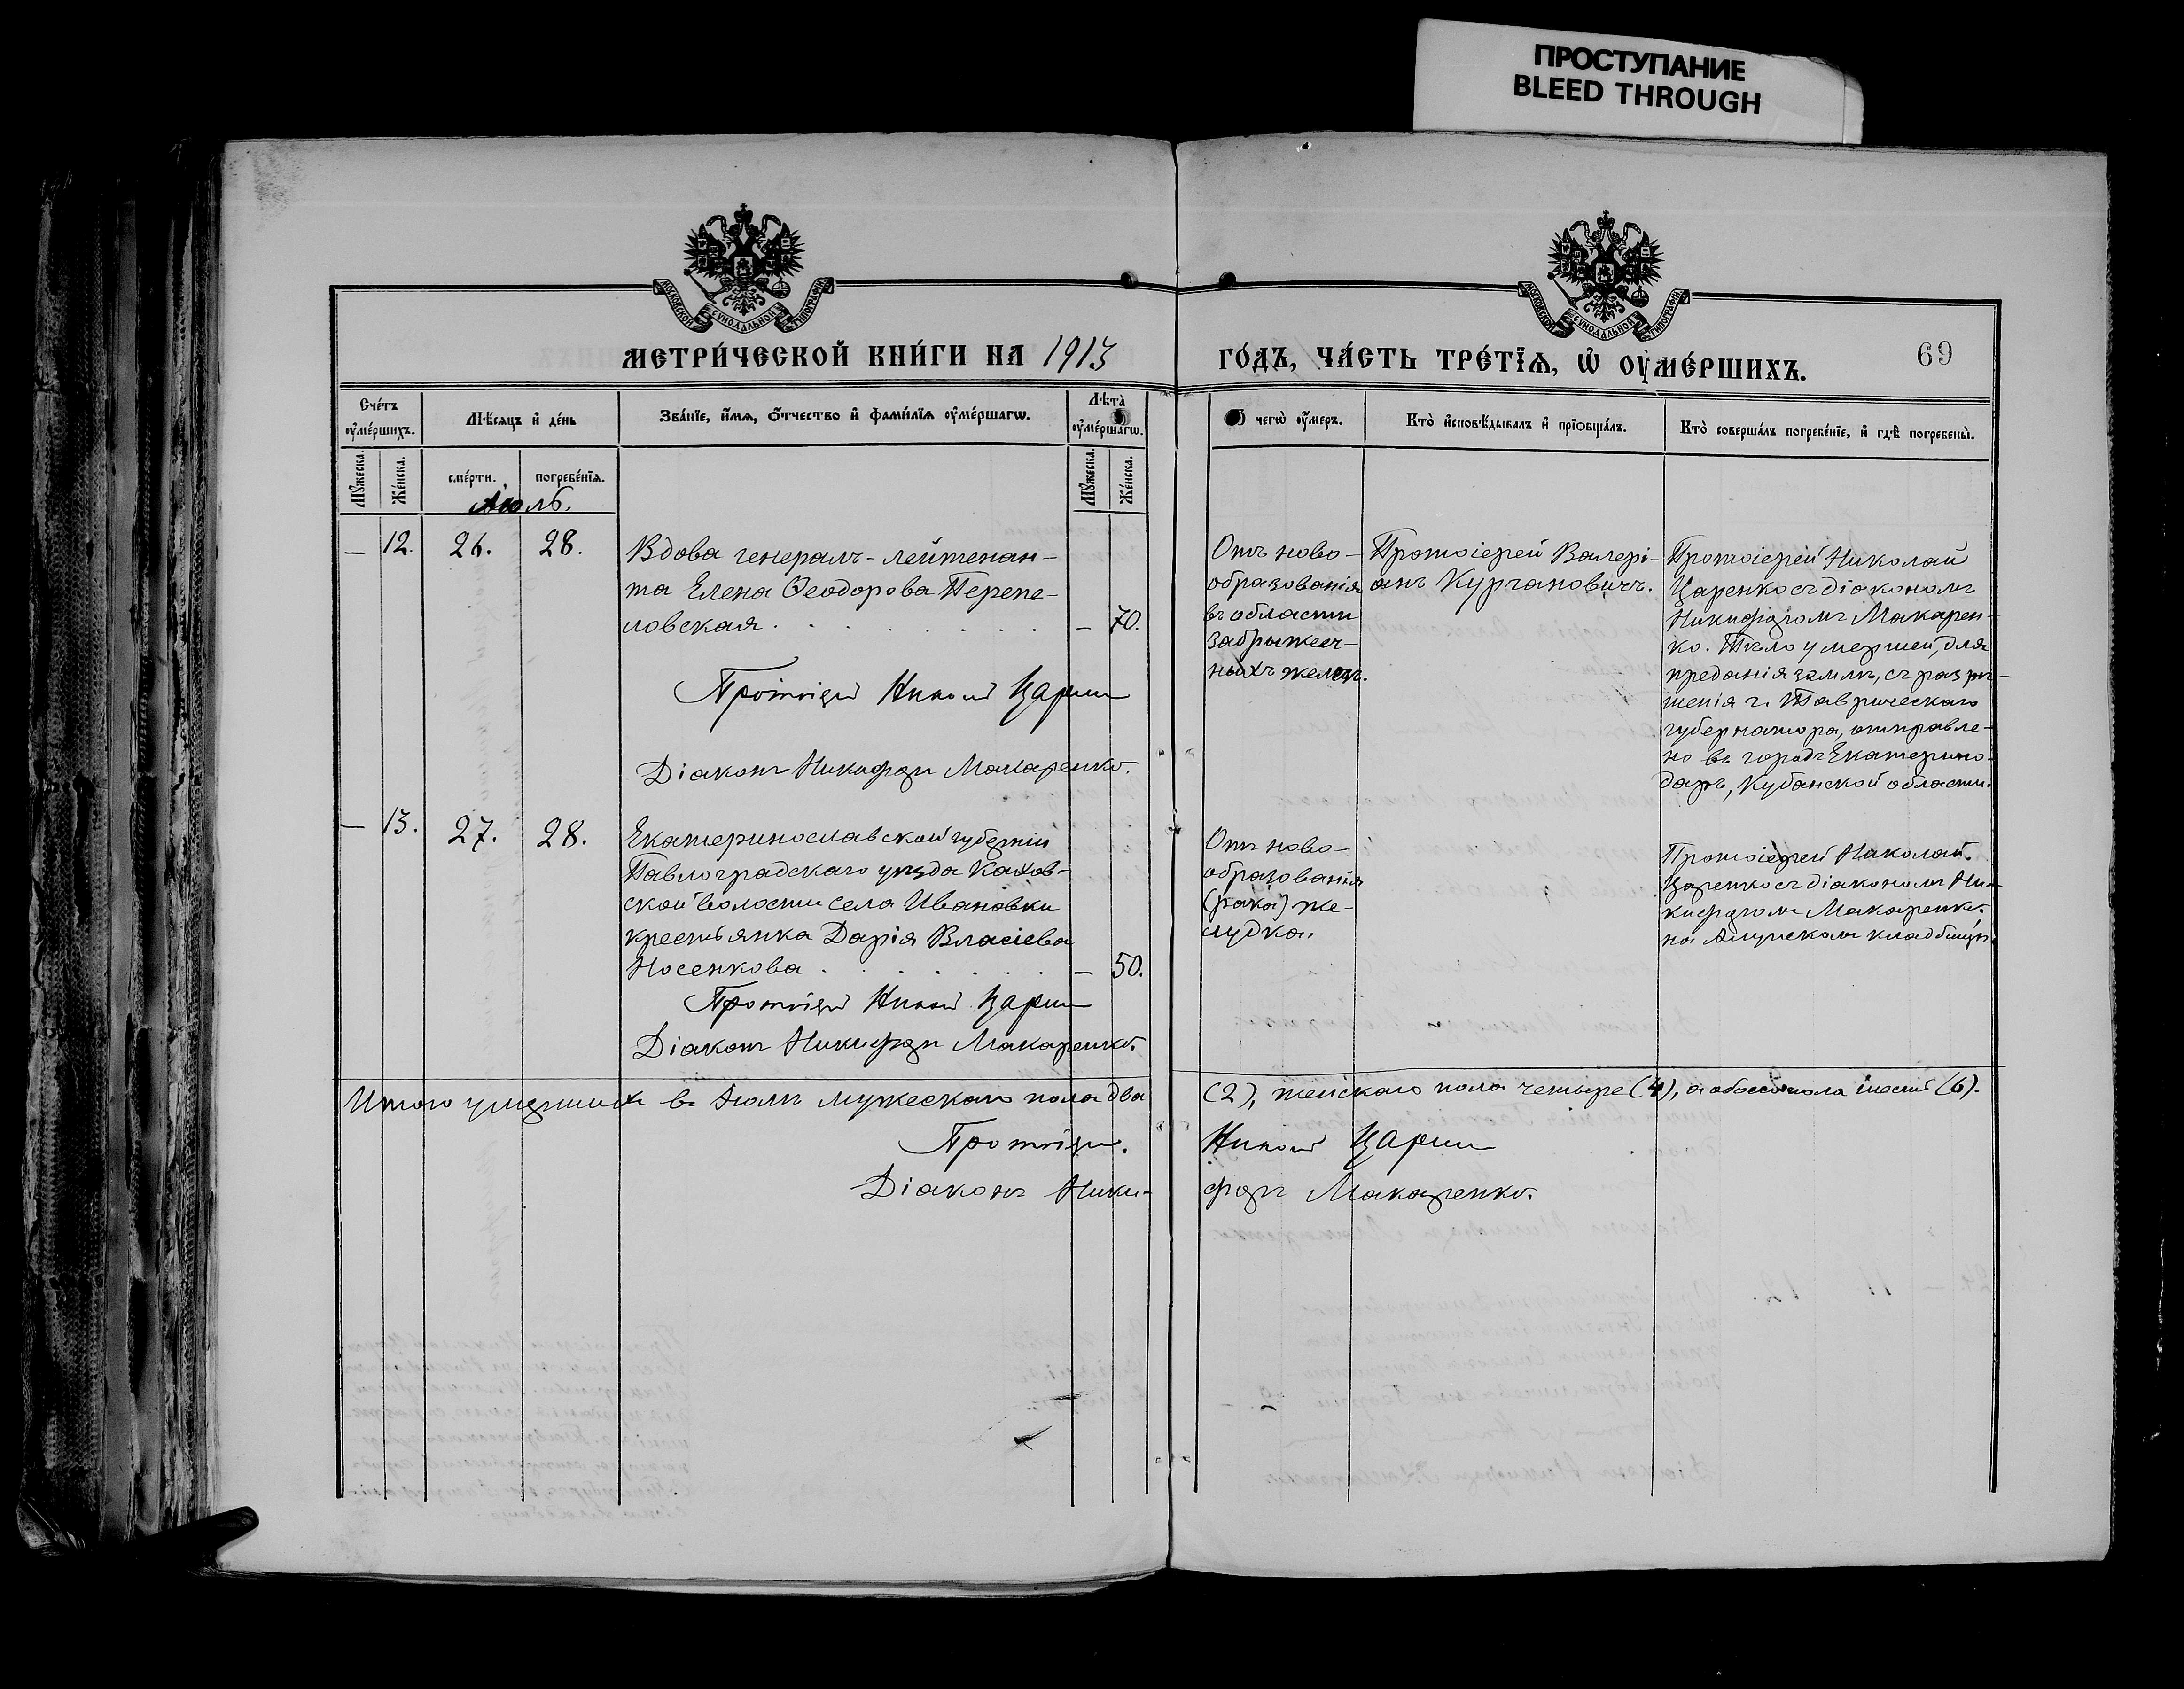 ПРОСТУПАНИЕ
BLEED THROUGH
МОСКОВСКОЙ СѴНОДАЛЬНОЙ ТИПОГРАФІИ
МОСКОВСКОЙ СѴНОДАЛЬНОЙ ТИПОГРАФІИ
МЕТРИ́ЧЕСКОЙ КНИ́ГИ НА 1913
ГО́ДЪ, ЧА́СТЬ ТРЕ́ТЇѦ, Ѡ҆ ОУ҆МЕ́РШИХЪ.
69
Сче́тъ оу҆ме́ршихъ.
Мѣ́сѧцъ и҆ де́нь
Зва́нїе, и҆́мѧ, ѻ҆́тчество и҆ фами́лїѧ оу҆ме́ршагѡ.
Лѣта̀ оу҆ме́ршагѡ.
чегѡ̀ оу҆́меръ.
Кто̀ и҆сповѣ́дывалъ и҆ прїѡбща́лъ.
Кто̀ соверша́лъ погребе́нїе, и҆ гдѣ̀ погребены̀.
Мꙋ́жеска.
Же́нска.
сме́рти.
погребе́нїѧ.
Мꙋ́жеска.
Же́нска.
Іюль.
— 12. 26. 28.
Вдова генералъ-лейтенан-
та Елена Ѳеодорова Перепе-
ловская . . . . . . . . — 70.
Протоіерей Николай Царенко
Діаконъ Никифоръ Макаренко.
Отъ ново-
образованія
въ области
забрыжееч-
ныхъ железъ.
Протоіерей Валері-
анъ Курчановичъ.
Протоіерей Николай
Царенко съ діакономъ
Никифоромъ Макарен-
ко. Тѣло умершей, для
преданія землѣ, съ разрѣ-
шенія г. Таврическаго
губернатора, отправле-
но въ городъ Екатерино-
даръ, Кубанской области.
— 13. 27. 28.
Екатеринославской губерніи
Павлоградскаго уѣзда Кахов-
ской волости села Ивановки
крестьянка Дарія Власіева
Носенкова . . . . . . . — 50.
Протоіерей Николай Царенко
Діаконъ Никифоръ Макаренко.
Отъ ново-
образованія
(рака) же-
лудка.
Протоіерей Николай
Царенко съ діакономъ Ни-
кифоромъ Макаренко.
на кладбищѣ.
Итого умершихъ въ Іюлѣ мужескаго пола два
(2), женскаго пола четыре (4), а обоего пола шесть (6).
Протоіерей
Николай Царенко
Діаконъ Ники-
форъ Макаренко.